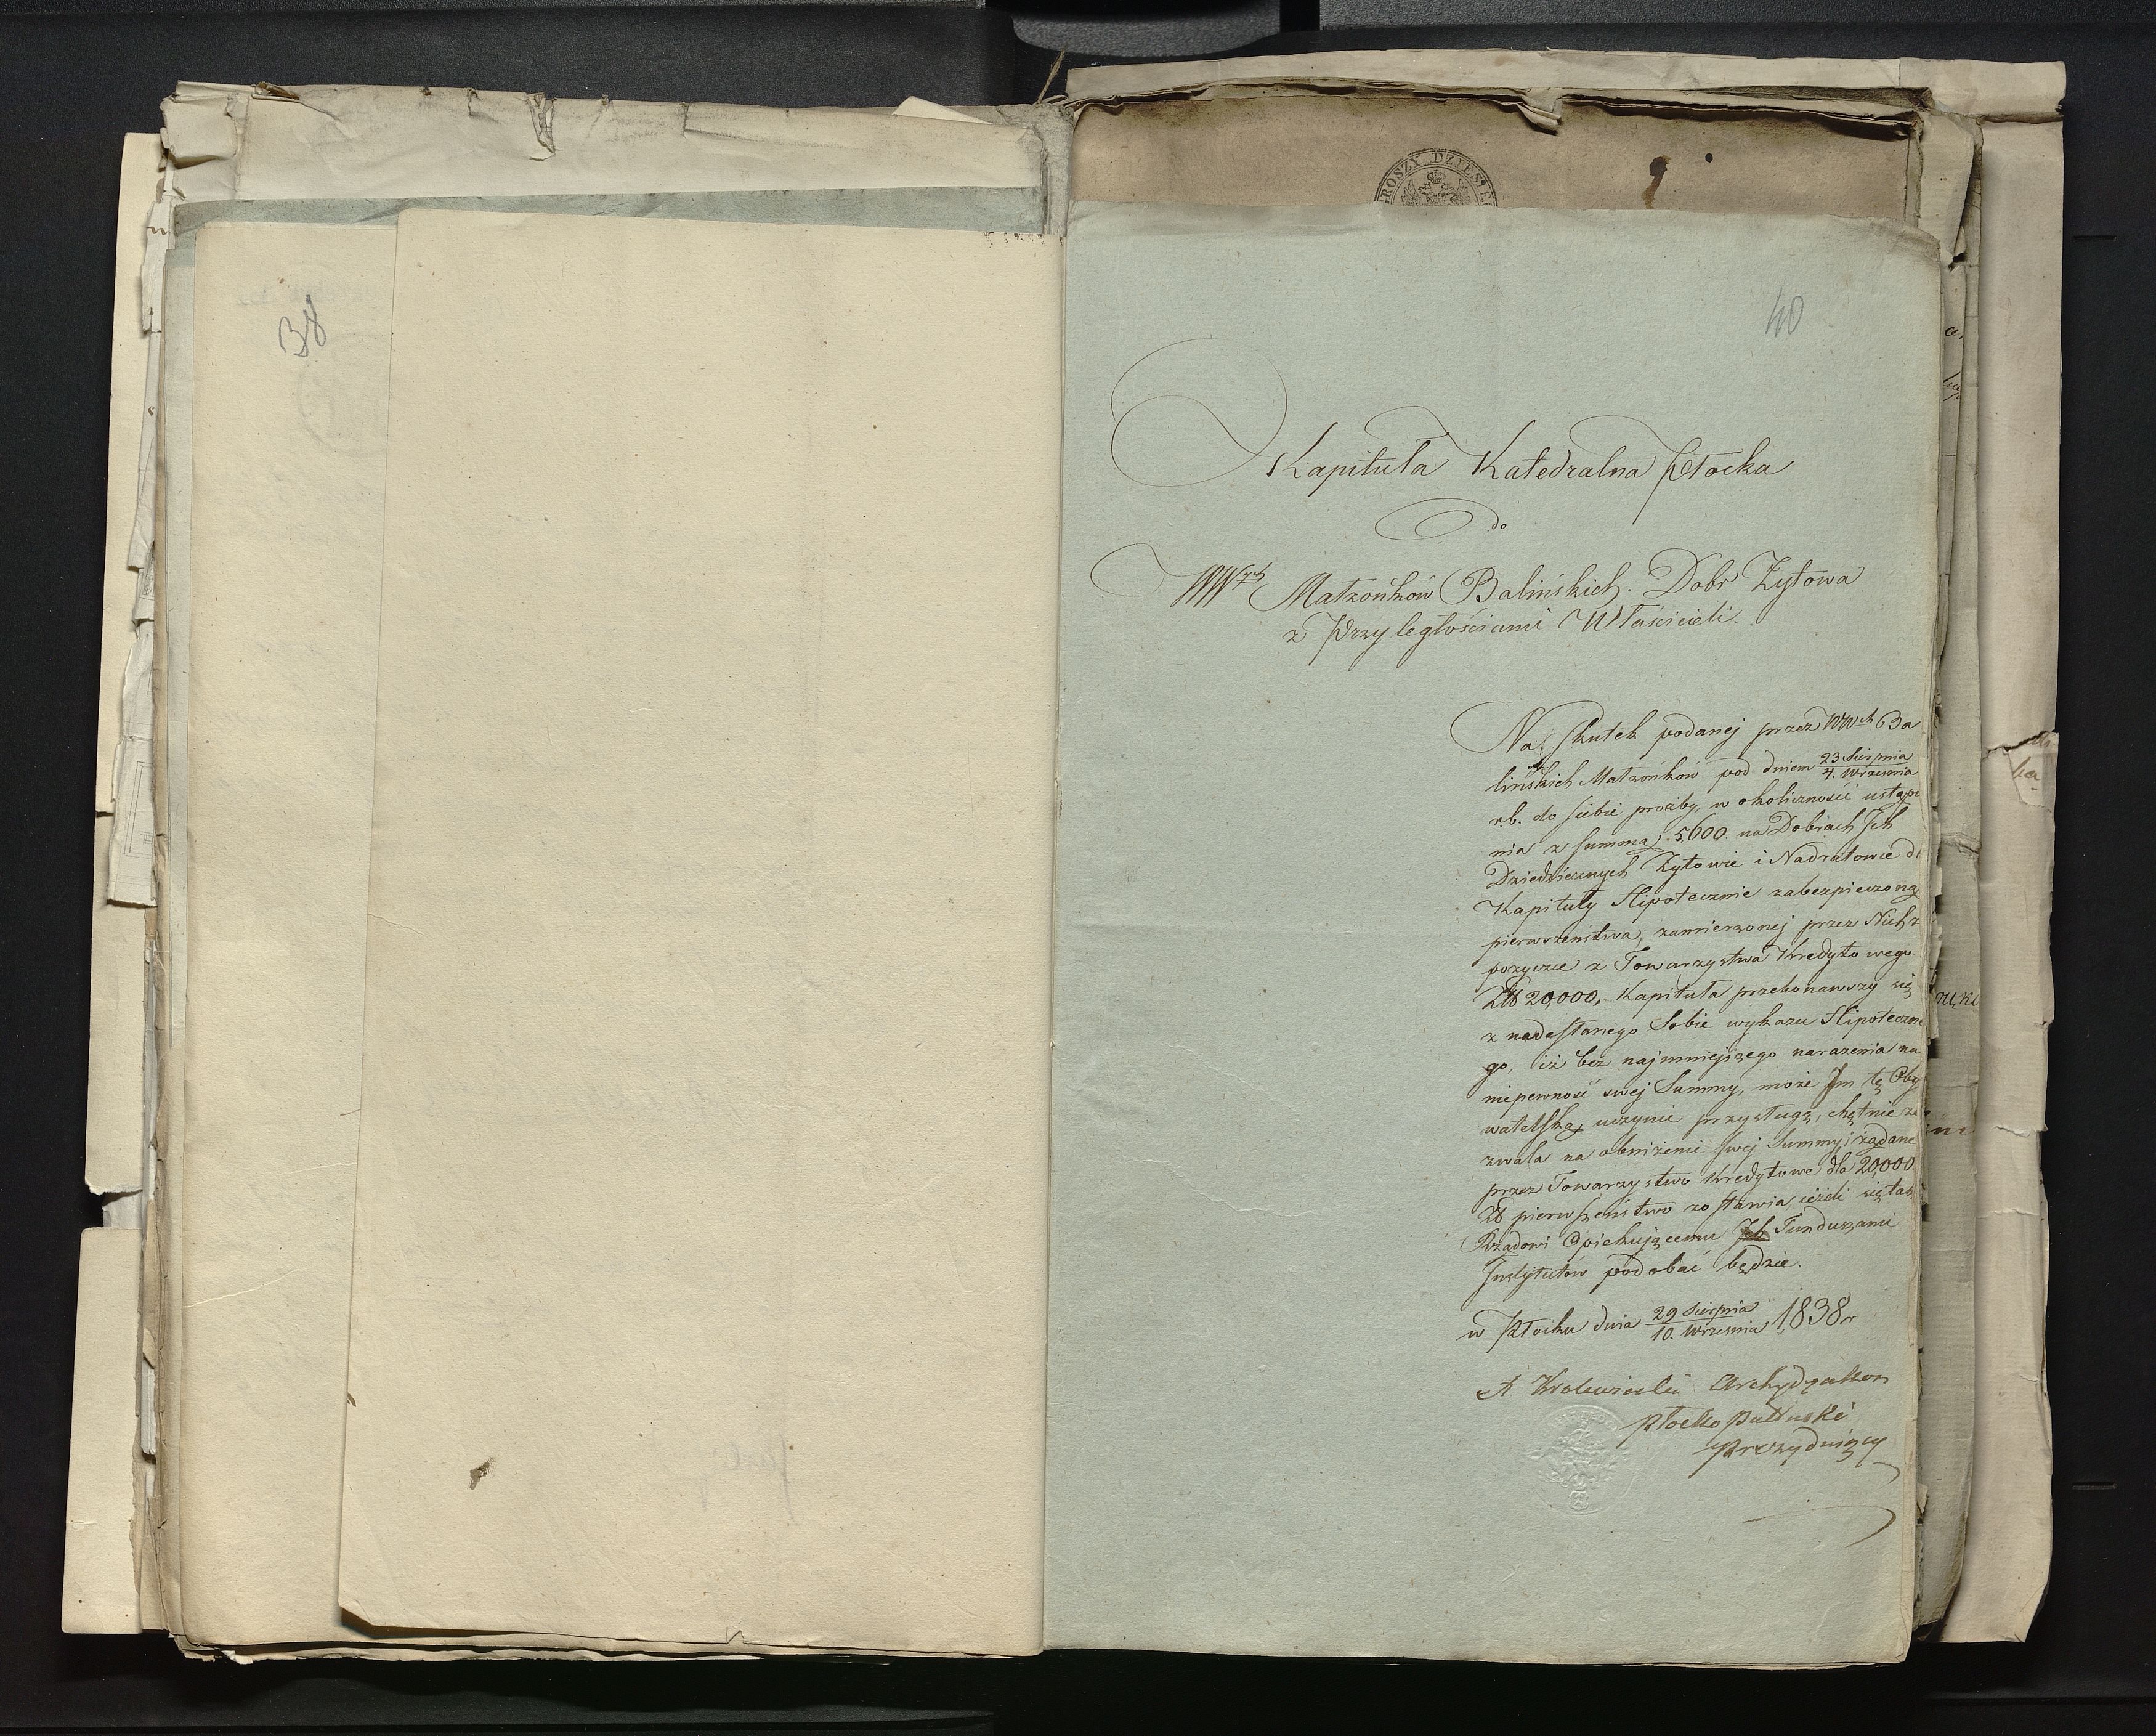 38
GROSZY DZIESIĘĆ
40
Kapituła Katedralna Płocka
do
WWch Małżonków Balińskich. Dobr Żytowa
z Przyległościami Właścicieli.
Na skutek podanej przez WWch Ba
lińskich Małżonków pod dniem 23 Sierpnia / 4. Września
r.b. do siebie prośby, w okoliczności ustąpie
nia z summą 5,600. na Dobrach Ich
Dziedzicznych Żytowie i Nadratowie dl
Kapituły Hipotecznie zabezpieczoną
pierwszeństwa, zamierzonej przez Nich
pożyczce z Towarzystwa Kredytowego
Zł 20,000,- Kapituła przekonawszy się
z nadesłanego Sobie wykazu Hipoteczne
go, iż bez najmniejszego narażenia na
niepewność swej Summy, może Im tę Oby
watelską uczynić przysługę, chętnie ze
zwala na obniżenie swej Summy, i żądane
przez Towarzystwo Kredytowe dla 20,000
Zł pierwszeństwo zostawia, jeżeli się tak
Rządowi Opiekującemu Funduszami
Instytutów podobać będzie.
w Płocku dnia 29 Sierpnia / 10. Września 1838r
Archidyakon
Płocko Pułtuski
Prezydujący